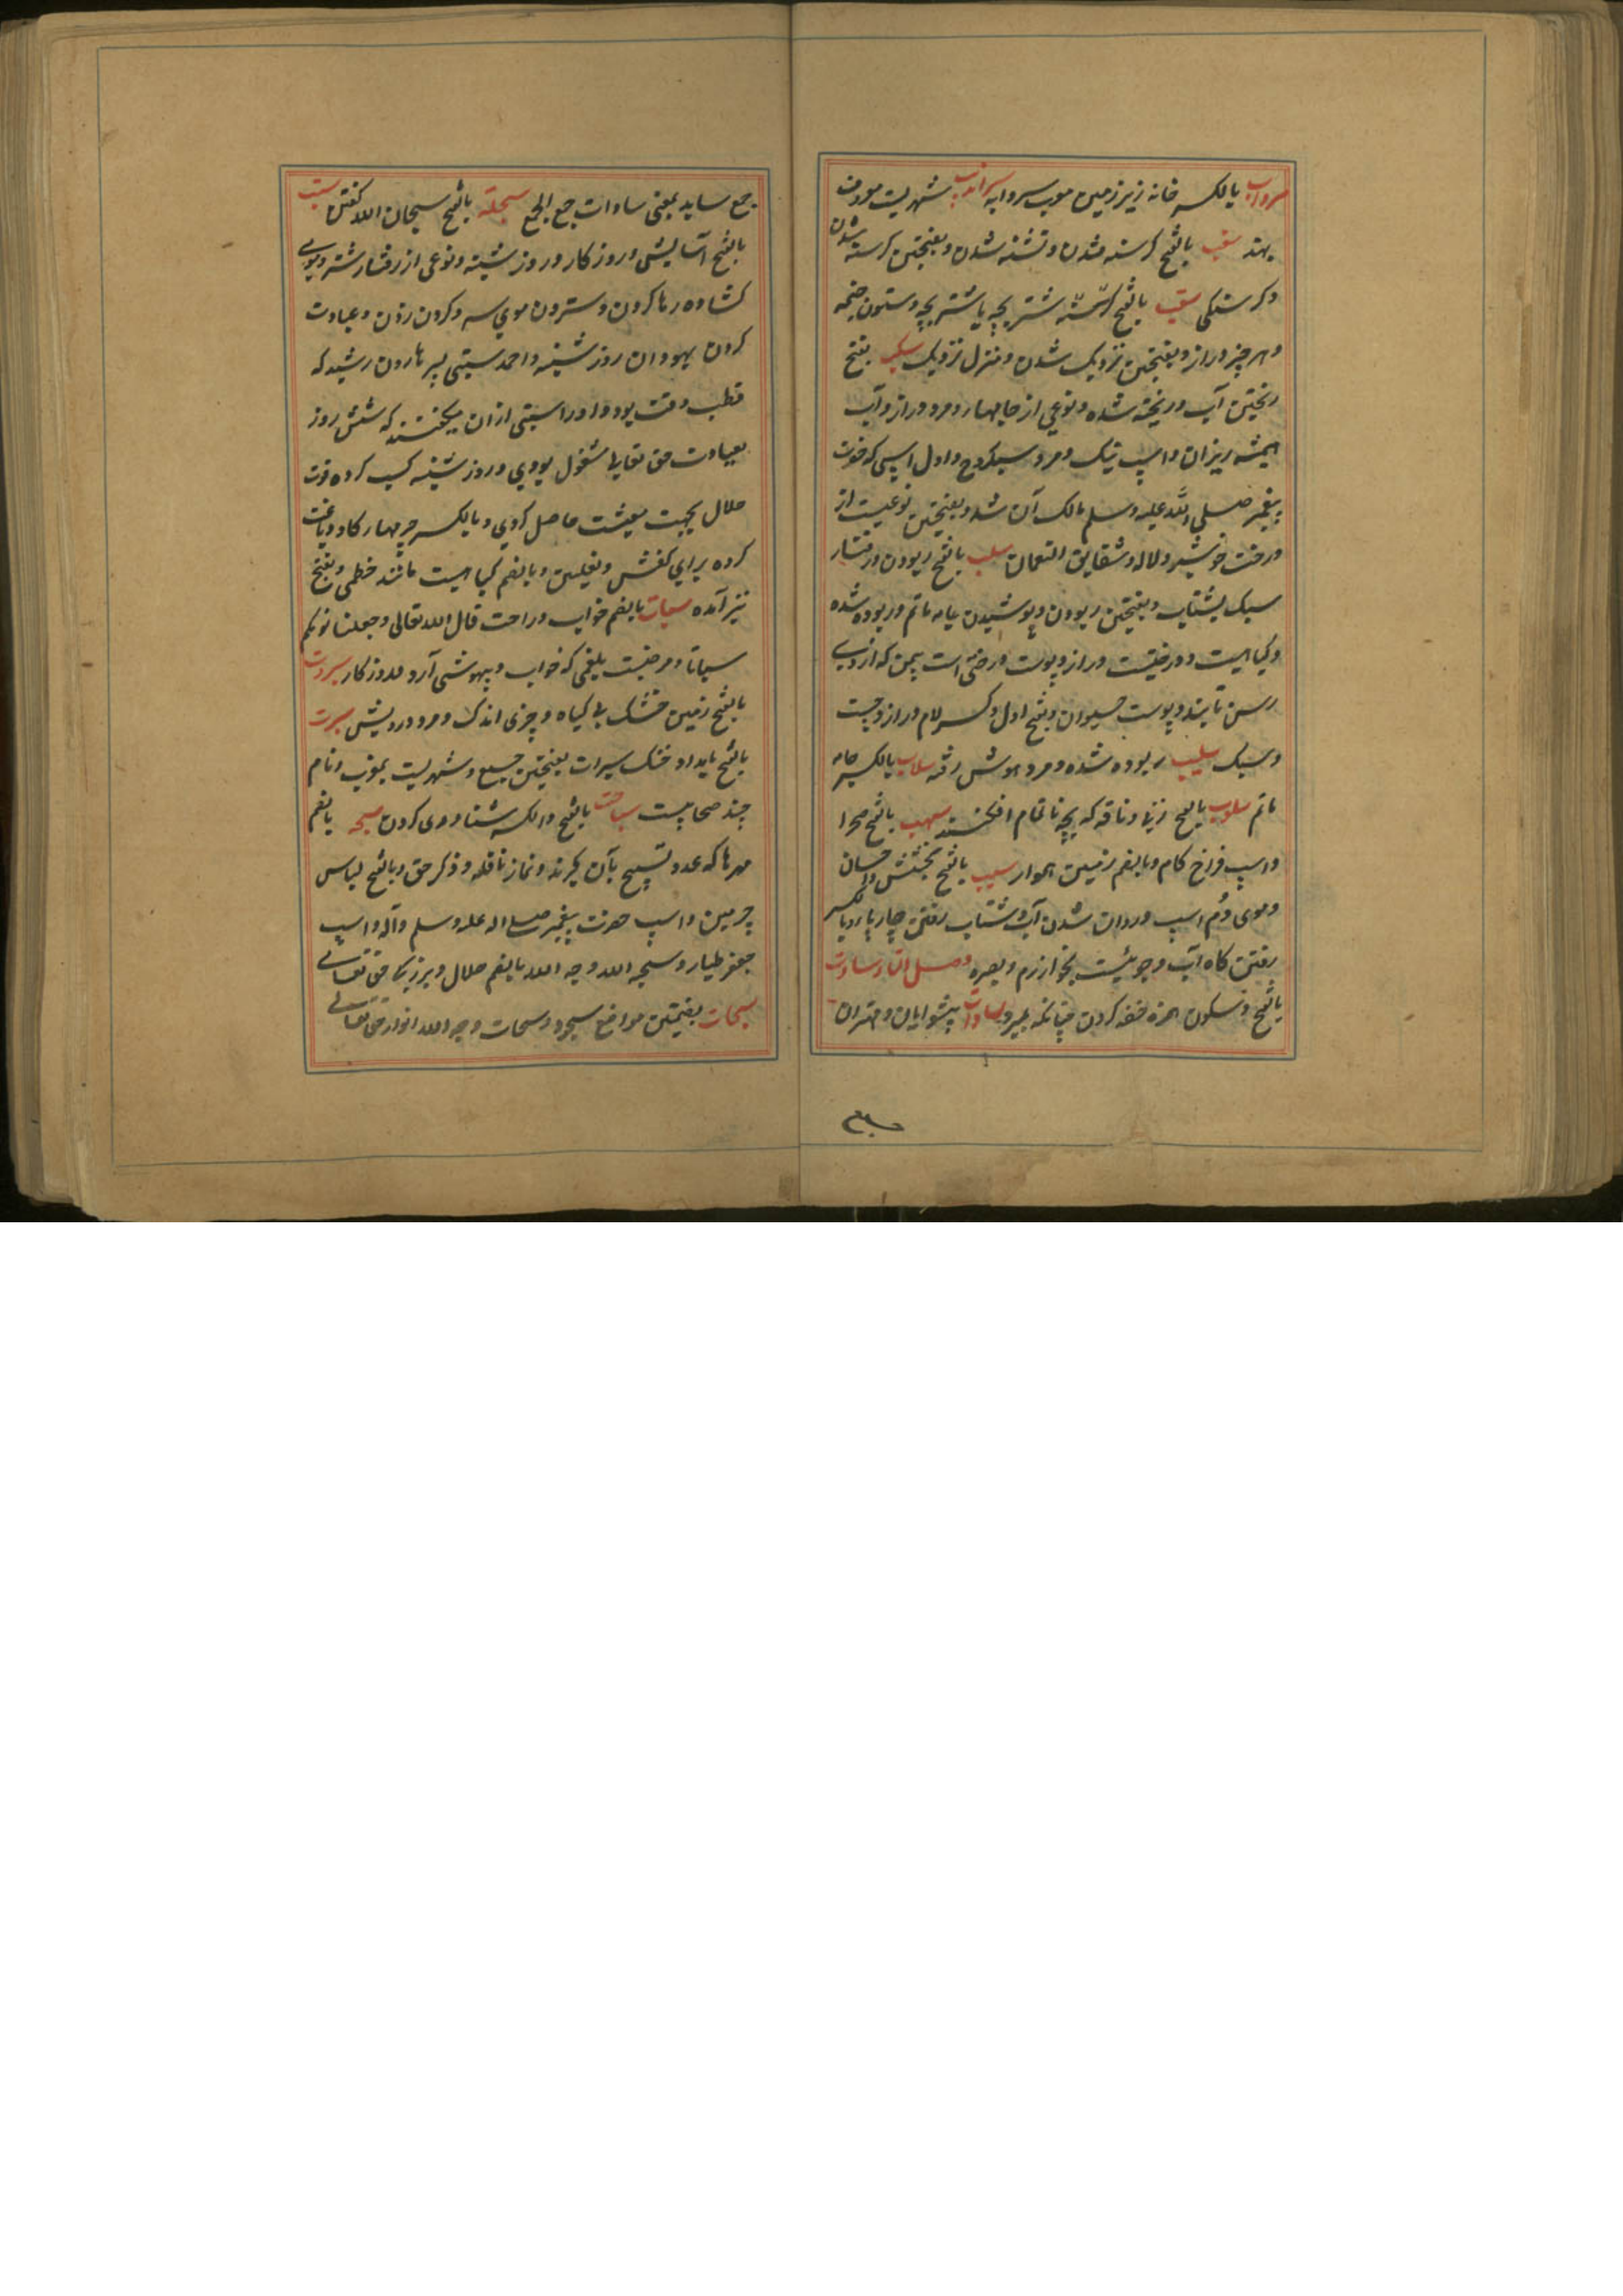 سرداب بالکسر خانه زیر زمین معرب سردابه سراندیب شهریست معروف
بهند سغب بالفتح کرسنه شدن و تشنه شدن و بفتحتین کرسنه شدن
و کرسنکی سقب بالفتح کرسنه شتر بچه یا شتر بچه و ستون خیمه
و هر چیز دراز و بفتحتین نزدیک شدن و منزل نزدیک سکب بفتح
ریختن آب و ریخته شده و نوعی از جامها و مرد دراز و آب
همیشه ریزان و اسپ نیک و مرد سبکروح و اول اسپی که حضرت
پیغمبر صلی الله علیه و سلم مالک آن شد و بفتحتین نوعیست از
درخت خوشبو و لاله و شقایق النعمان سلب بالفتح ربودن و رفتار
سبک بشتاب و بفتحتین ربودن و پوشیدن جامه ماتم و ربوده شده
و کیاهیست و درختیست دراز و پوست درختی است بیمن که از وی
رسن تابند و پوست حیوان و بفتح اول و کسر لام دراز و چست
و سبک سلیب ربوده شده و مرد هوش رفته سلاب بالکسر جامه
ماتم سلوب بالفتح زن و ناقه که بچه ناتمام افکنند سهب بالفتح صحرا
و اسپ فراخ کام و بالضم زمین هموار سیب بالفتح بخشش و احسان
و موی دم اسپ و روان شدن آب و شتاب رفتن چارپا و بالکسر
رفتن کاه آب و جوئیست بخوارزم و بصره فصل التاء سادت
بالفتح و سکون همزه خفه کردن چنانکه بمیرد سادات پیشوایان و مهتران
جمع ساید بمعنی سادات جمع الجمع سبحلة بالفتح سبحان الله کفتن سبت
بالفتح آسایش و روزکار و روز شنبه و نوعی از رفتار شتر و موی
کشاده رها کردن و ستردن موی سر و کردن زدن و عبادت
کردن یهودان روز شنبه و احمد سبتی پسر هارون رشید که
قطب وقت بود و او را سبتی ازان میکفتند که شش روز
بعبادت حق تعالی مشغول بودی و روز شنبه کسب کرده قوت
حلال بجهت معیشت حاصل کردی و بالکسر چرمهای کاو دباغت
کرده برای کفش و نعلین و بالضم کیاهیست مانند خطمی و بفتح
نیز آمده سبات بالضم خواب و راحت قال الله تعالی و جعلنا نومکم
سباتا و مرضیست بلغمی که خواب و بیهوشی آرد و روزکار سبروت
بالفتح زمین خشک بی کیاه و چیزی اندک و مرد درویش سبرت
بالفتح بامداد خنک سبرات بفتحتین جمع و شهریست بمغرب و نام
چند صحابیست سباحت بالفتح و الکسر شناوری کردن سبحه بالضم
مهرها که عدد تسبیح بآن کیرند و نماز نافله و ذکر حق و بالفتح لباس
چرمین و اسپ حضرت پیغمبر صلی الله علیه و سلم و آله و اسپ
جعفر طیار و سبحه الله وجه الله بالضم جلال و بزرکی حق تعالی
سبحات بضمتین مواضع سجود و سبحات وجه الله انوار حق تعالی